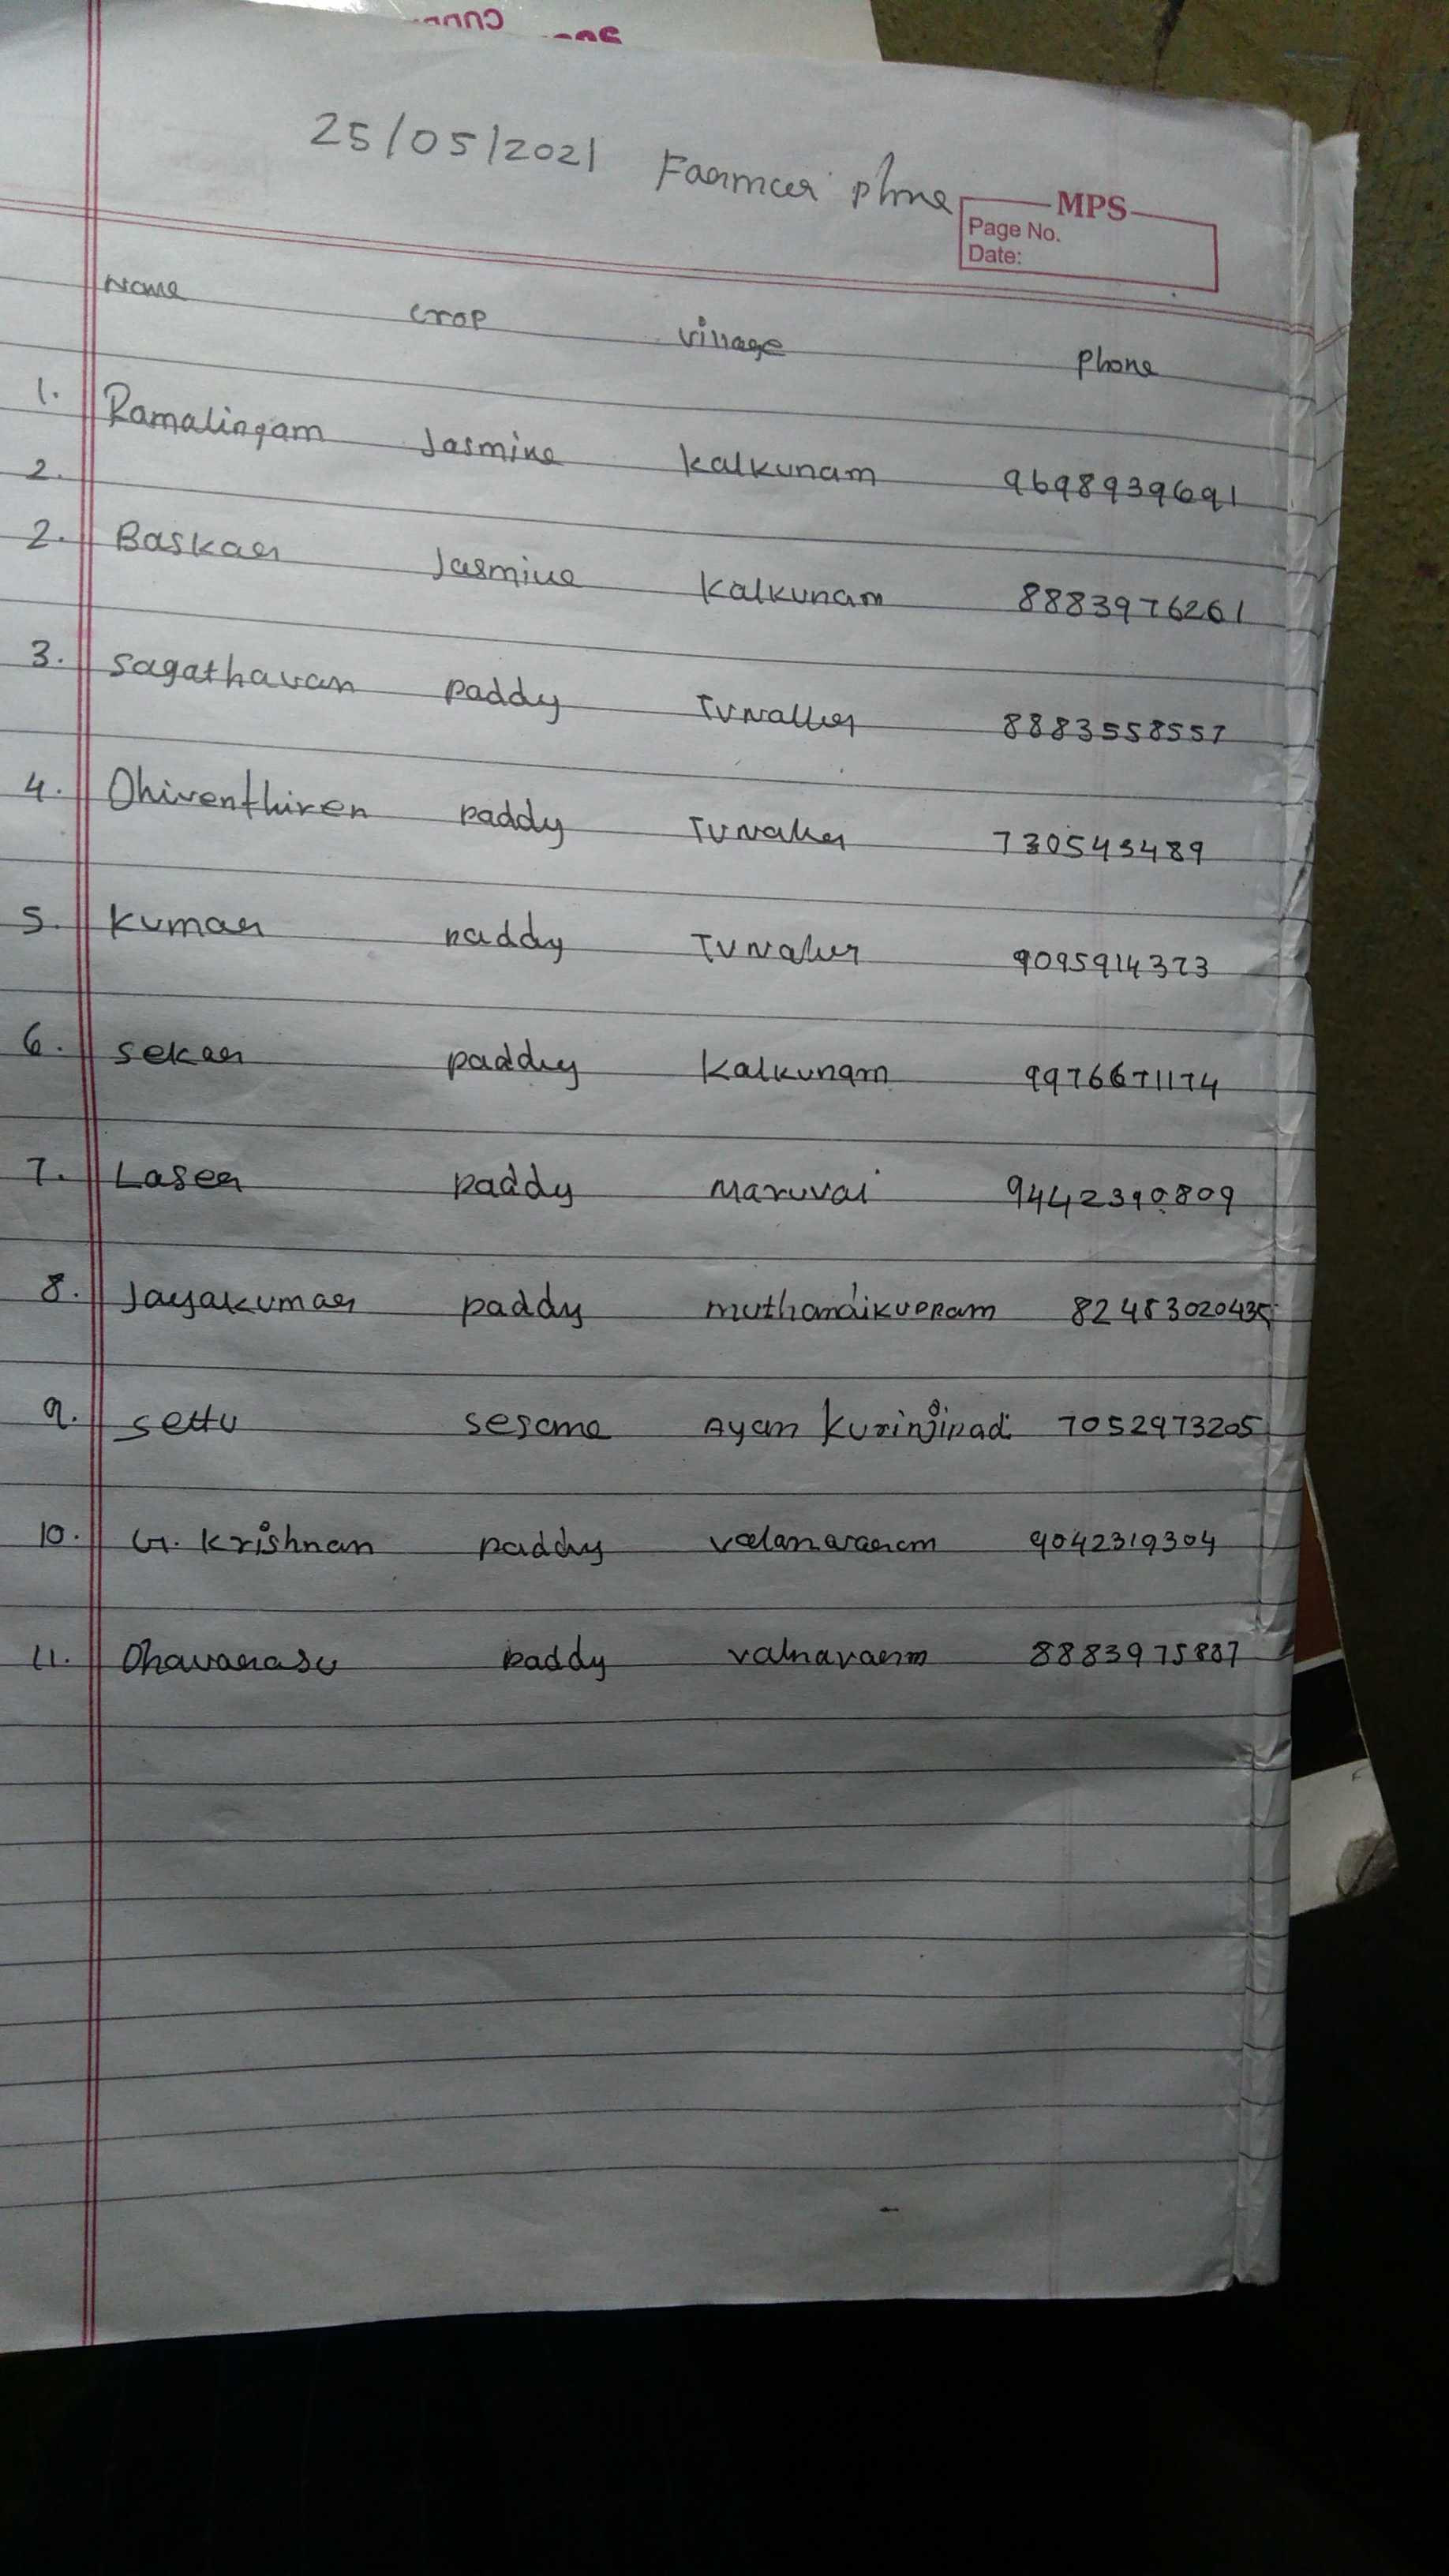 25/05/2021 Farmer phone
MPS
Page No.
Date:
Name crop village phone
1. Ramalingam Jasmine kalkunam 9698939691
2.
2. Baskar Jasmine kalkunam 8883976261
3. sagathavan paddy 8883558557
4. Dhiventhiren paddy 730543489
5. kumar paddy 9095914373
6. sekar paddy kalkunam 9976671174
7. Laser paddy maruvai 9442390809
8. Jayakumar paddy
9. settu sesame Ayan kurinjipadi 7052973205
10. G. Krishnan paddy 9042319304
11. paddy 8883975887